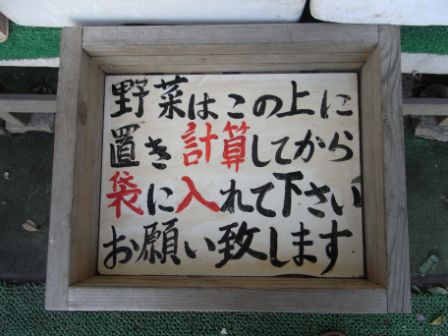 野菜はこの上に
置き計算してから
袋に入れて下さい
お願い致します